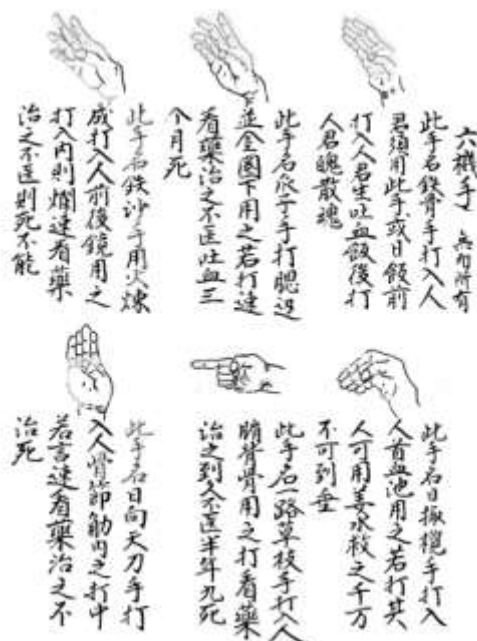 六機手 所有
此手名鉄骨手打入人
君須用此手或日飯前
打入人君生吐血飯後打
人君魄散魂
此手名爪子手打腮边
並全圍下用之若打速
看藥治之不医吐血三
个月死
此手名鉄沙手用火煉
成打入人前後鏡用之
打入肉則爛速看藥
治之不医則死不能
此手名日手打入
人首血池用之若打其
人可用姜水救之千万
不可到垂
此手名一路草枝手打入人
脊骨用之打看藥
治之到久不医半年九死
此手名日向天刀手打
入人骨節筋內之打中
若言速看藥治之不
治死